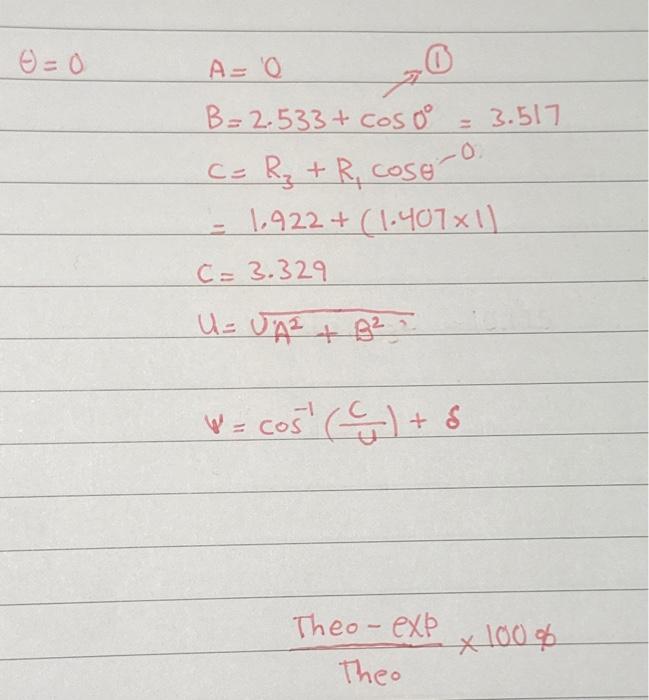 θ = 0 A = 0 ①
B = 2.533 + cos 0° = 3.517
C = R₃ + R₁ cosθ 0
= 1.922 + (1.407 × 1)
C = 3.329
U = √A² + B²
ψ = cos⁻¹ (C/U) + δ
Theo - exp / Theo × 100 %